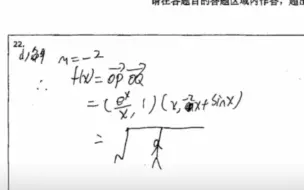 请在各题目的答题区域内作答，超出
22.
(1) 解 n=-2
∴ f(x)=OP⃗ OQ⃗
=(eˣ/x, 1)(x, x+sinx)
=√